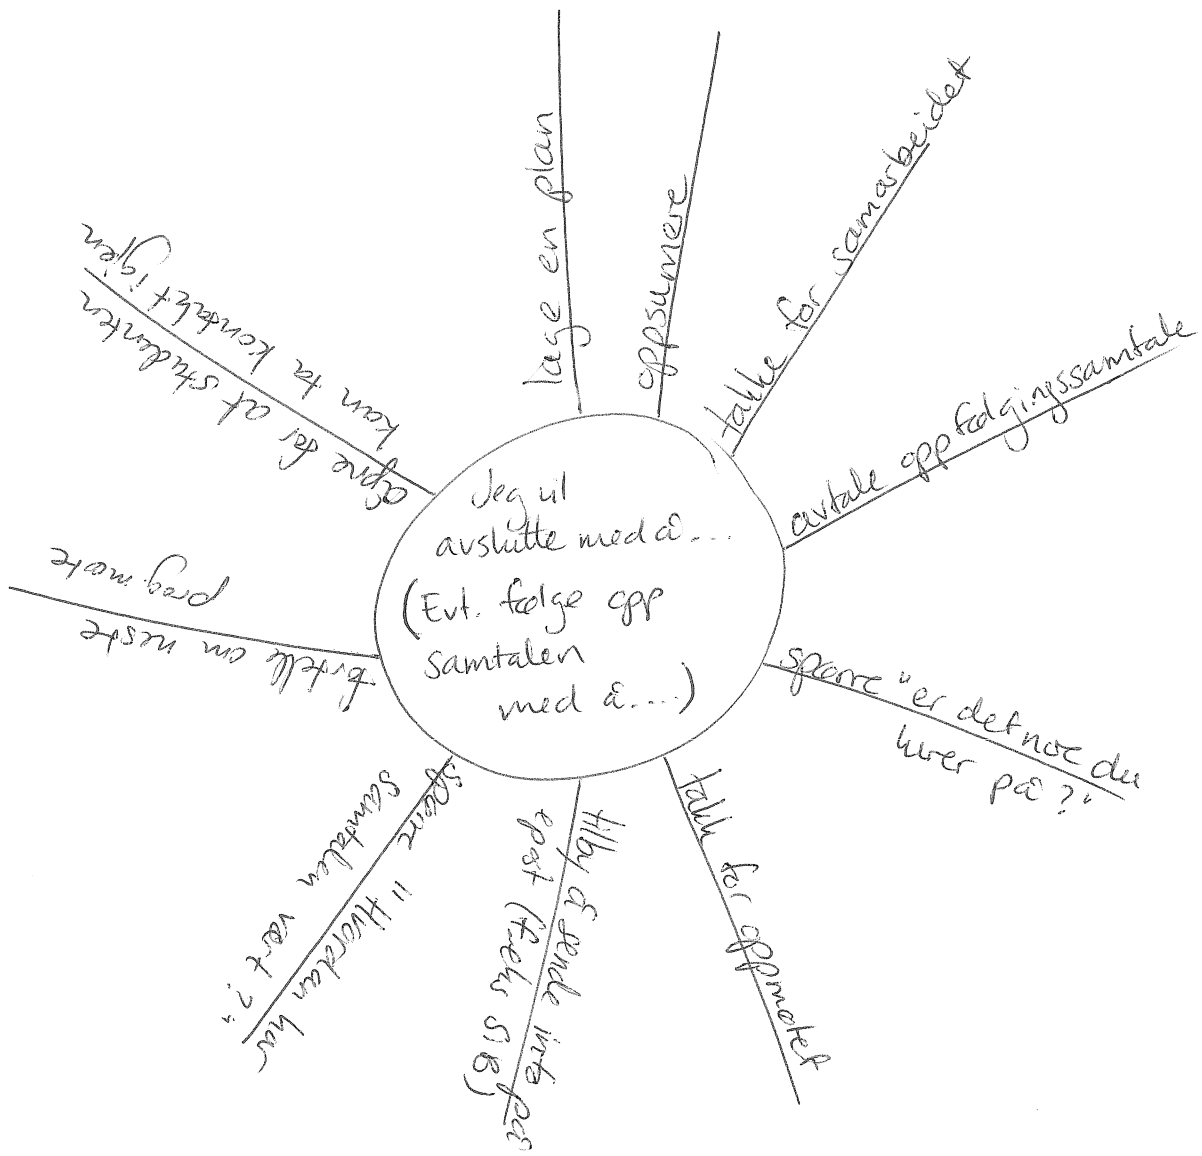 Jeg vil
avslutte med å...
(Evt. følge opp
samtalen
med å....)
lage en plan
oppsumere
takke for samarbeidet
avtale oppfølgingssamtale
spørre "er det noe du
lurer på?"
takk for oppmøtet
tilby å sende info på
epost (f.eks SiB)
spørre "Hvordan har
samtalen vært?"
fortelle om neste
prog.møte
åpne for at studenten
kan ta kontakt igjen